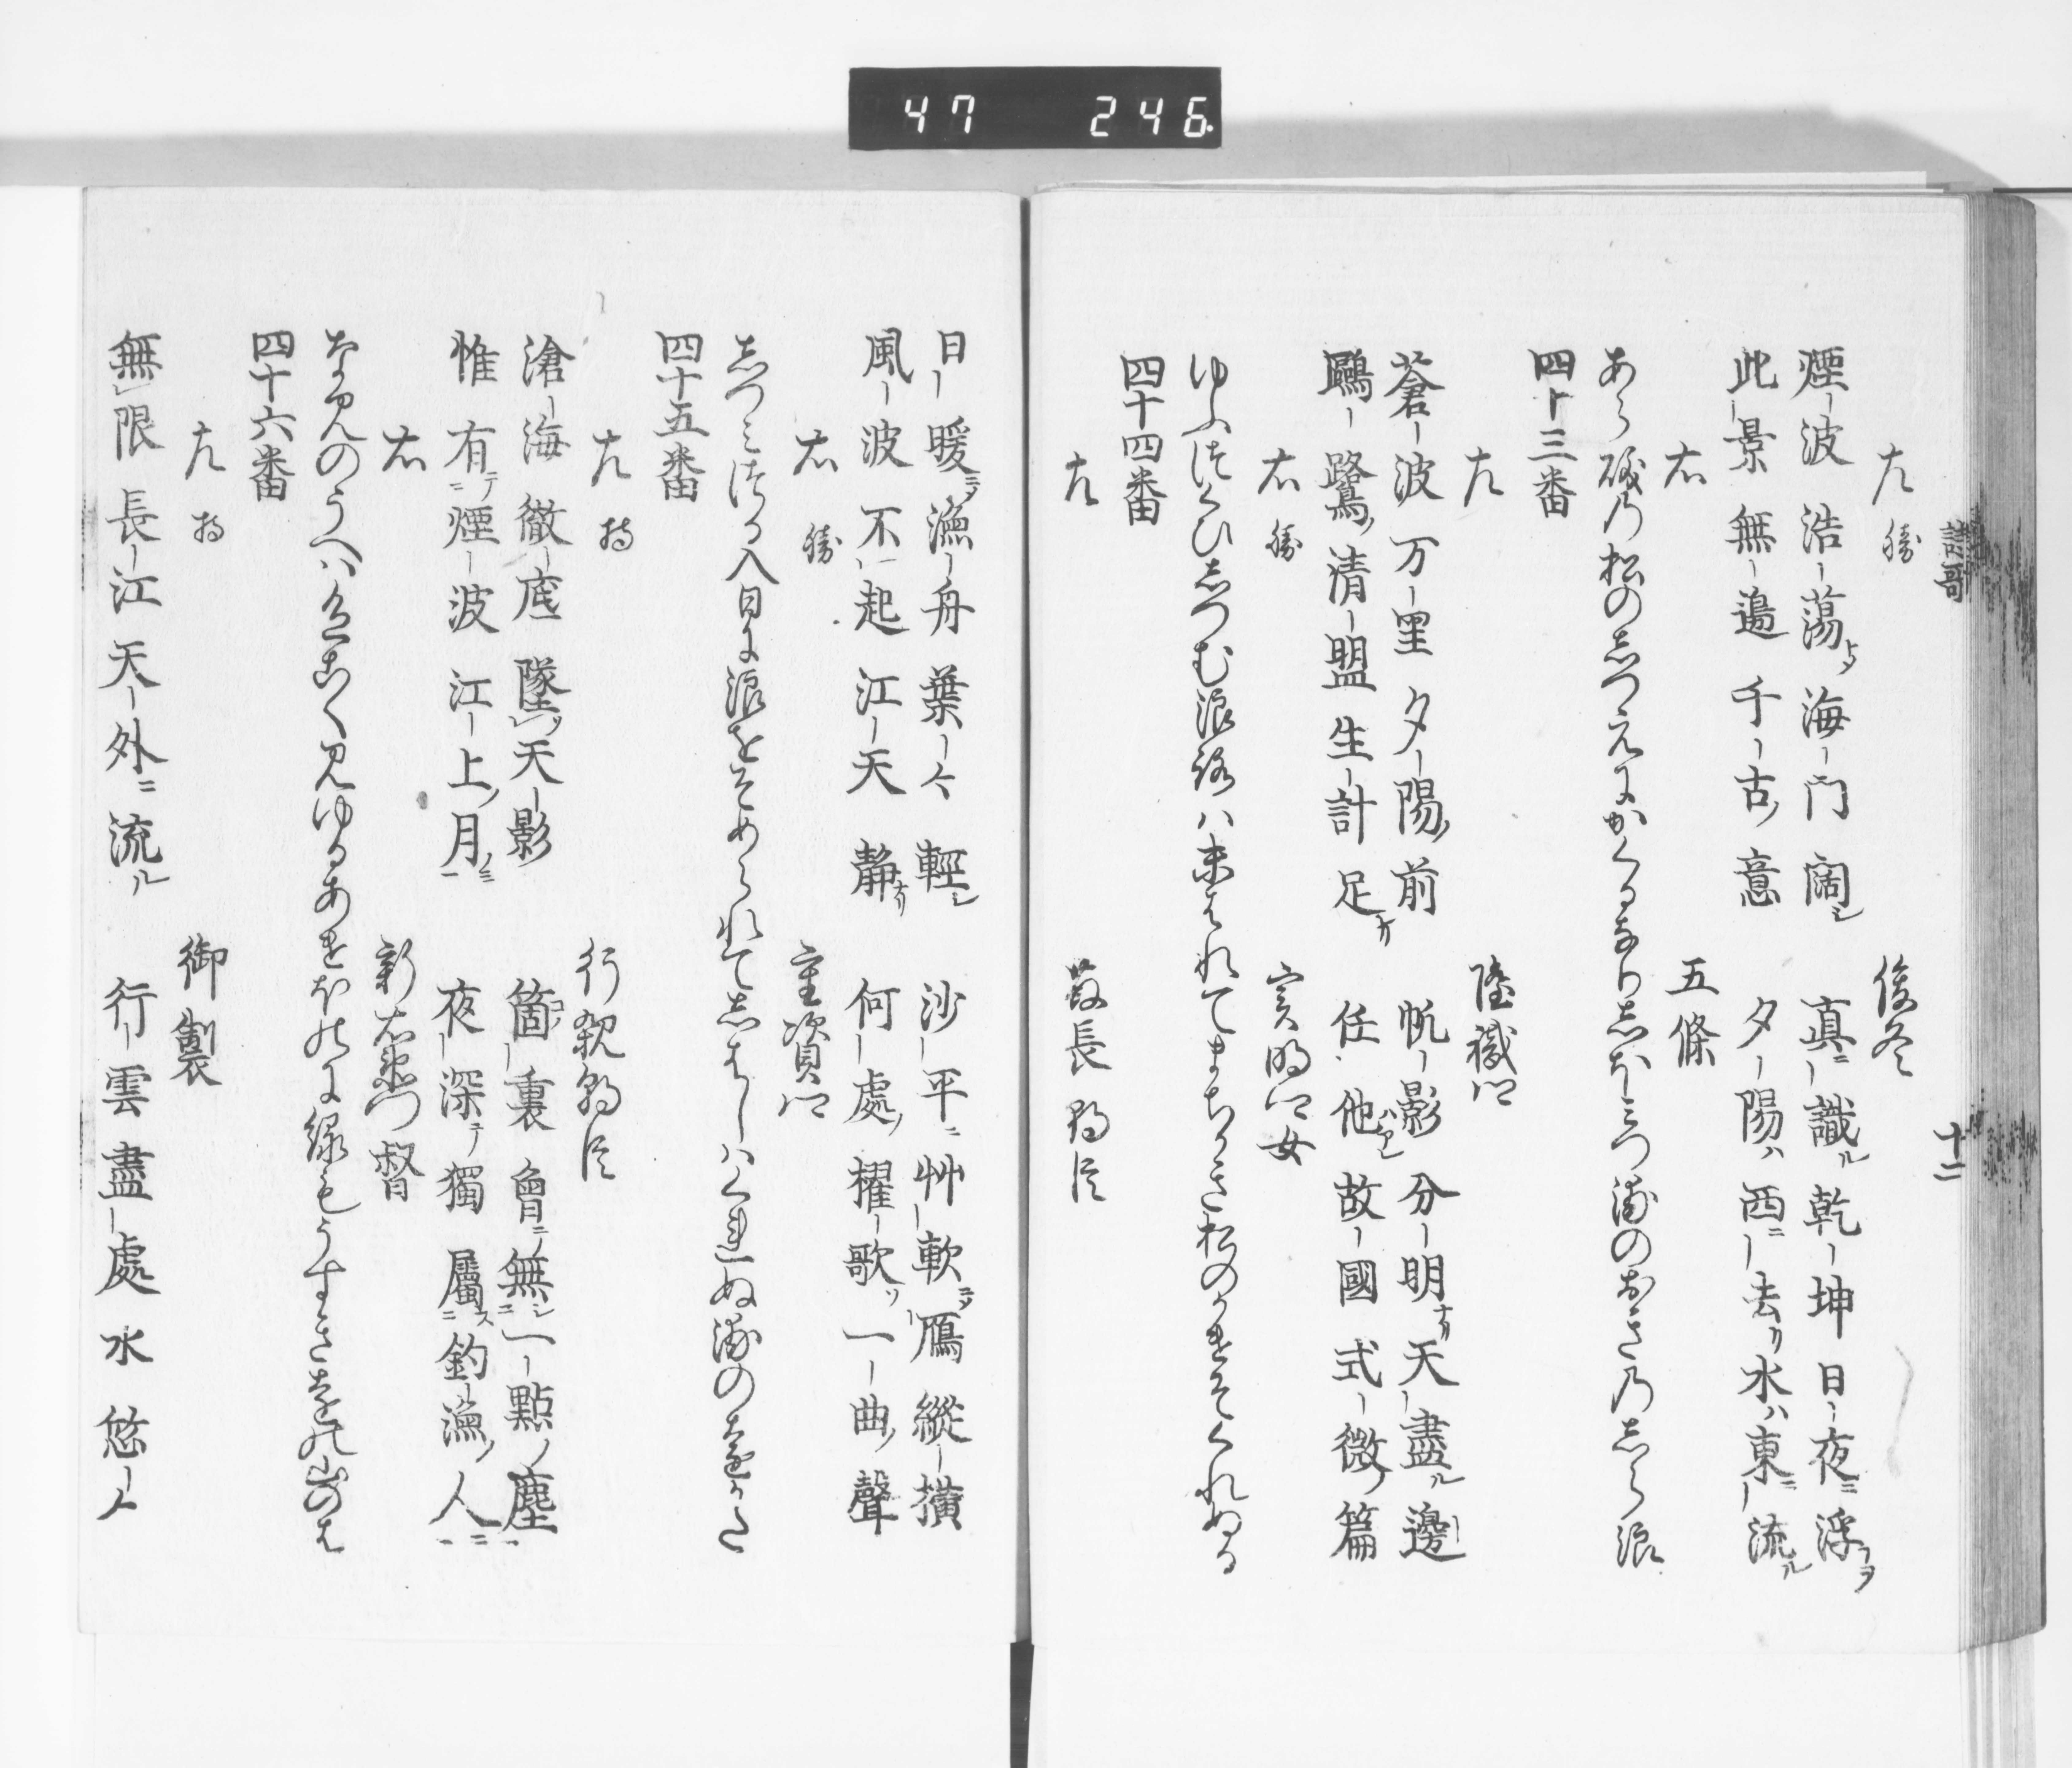 47 246
詩哥
十二
左 勝 俊冬
煙波浩蕩海門闊 真識乾坤日夜浮
此景無邊千古意 夕陽西去水東流
右 五條
あら磯乃松のしつえにかくるなりしほみつ浦のおき乃しら浪
四十三番
左 隆織卿
蒼波万里夕陽前 帆影分明天盡邊
鷗鷺清盟生計足 任他故國式微篇
右 勝 実明卿女
ゆふつくひしつむ浪路ハ末はれてまちかき松のかけそくれぬる
四十四番
左 敬長朝臣
日暖漁舟葉々輕 沙平艸軟鴈縱横
風波不起江天静 何處櫂歌一曲聲
右 勝 重資卿
しつみ行入日に浪をそめられてしはしハくれぬ浦のをちかた
四十五番
左 持 行親朝臣
滄海徹底墜天影 箇裏曾無一點塵
惟有煙波江上月 夜深獨屬釣漁人
右 新右衛門督
なみのうへハ色こく見ゆるあまをふねに緑もうすきをちの山のは
四十六番
左 持 御製
無限長江天外流 行雲盡處水悠〻